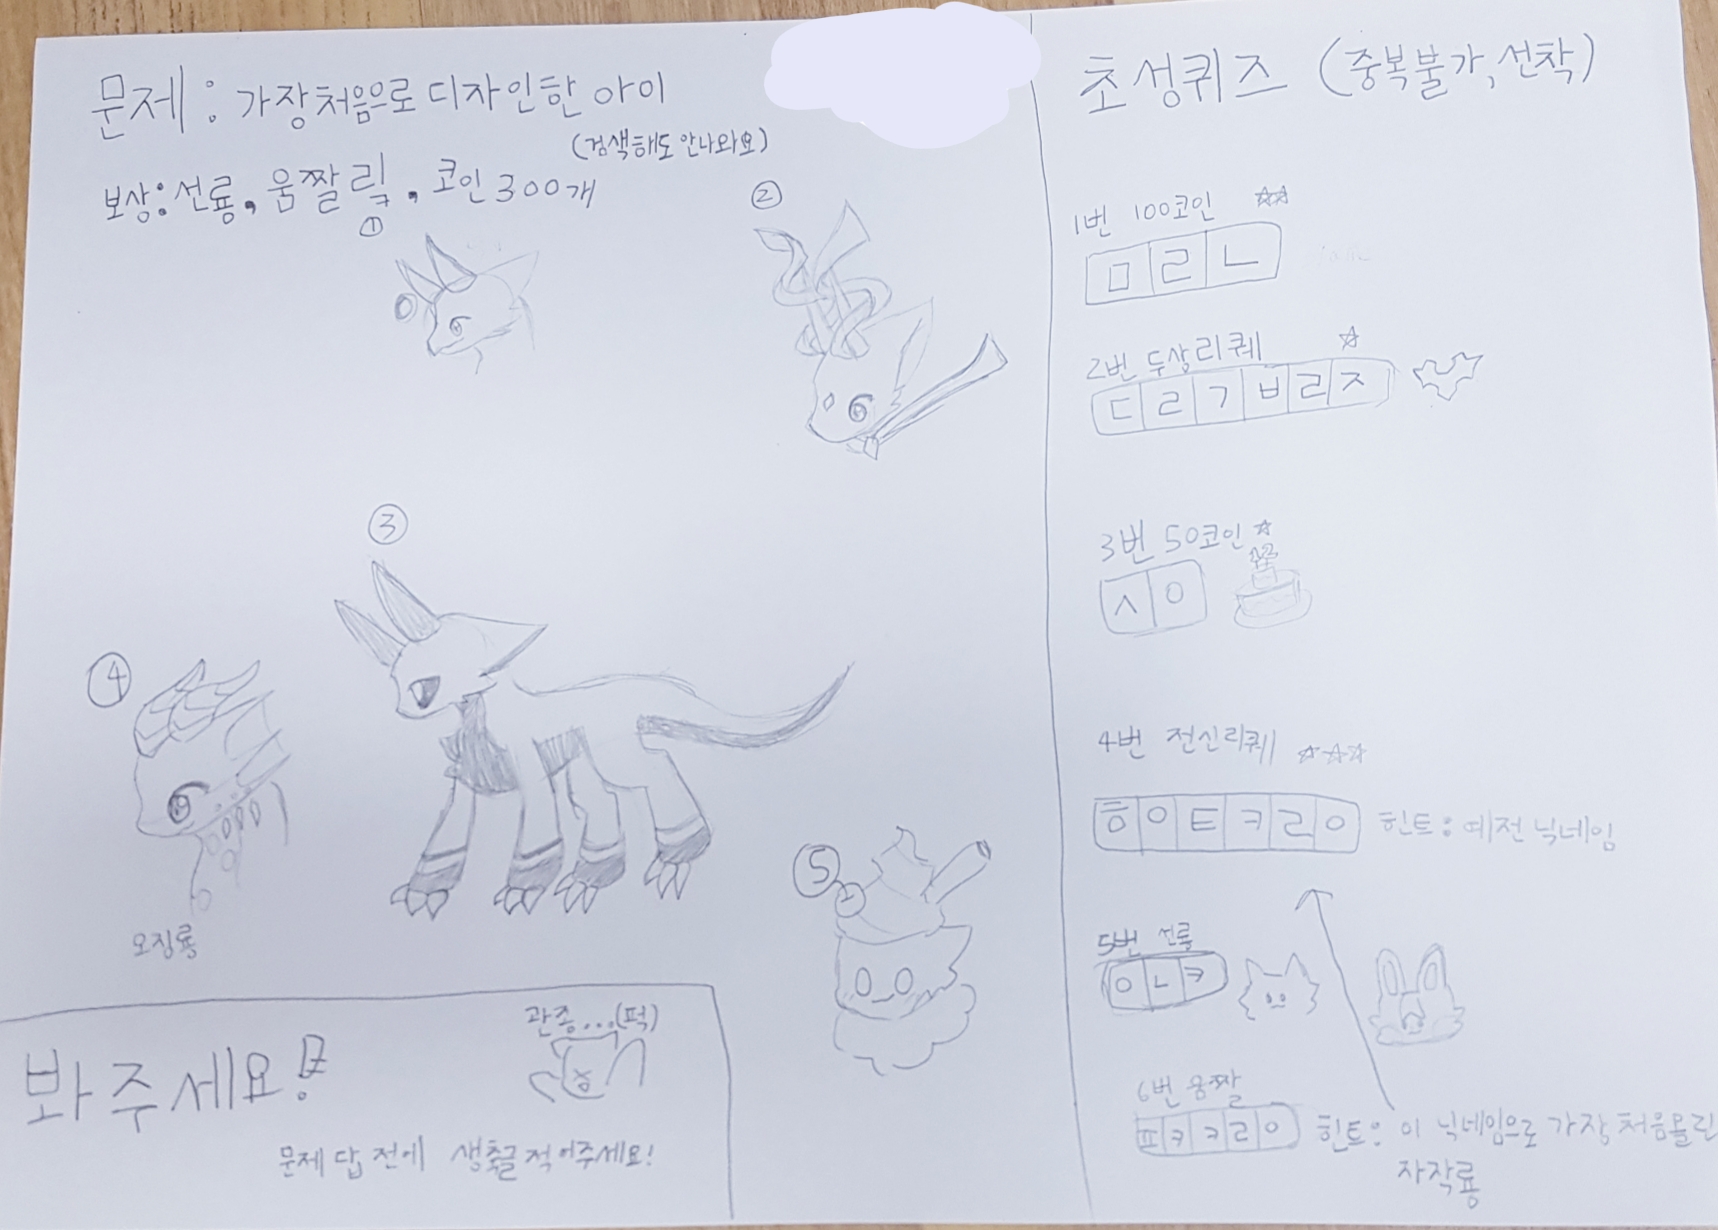 문제: 가장처음으로 디자인한 아이
(검색해도 안나와요)
보상: 선룡, 움짤릭, 코인 300개
①
②
③
④
오징룡
⑤
봐주세요!
관종...(퍽)
문제 답 전에 생축글 적어주세요!
초성퀴즈 (중복불가, 선착)
1번 100코인 ☆☆
ㅁㄹㄴ
2번 두상리퀘 ☆
ㄷㄹㄱㅂㄹㅈ
3번 50코인 ☆
ㅅㅇ
4번 전신리퀘 ☆☆☆
ㅎㅇㅌㅋㄹㅇ 힌트: 예전 닉네임
5번 선룡
ㅇㄴㅋ
6번 움짤
ㅍㅋㅋㄹㅇ 힌트: 이 닉네임으로 가장 처음 올린
자작룡